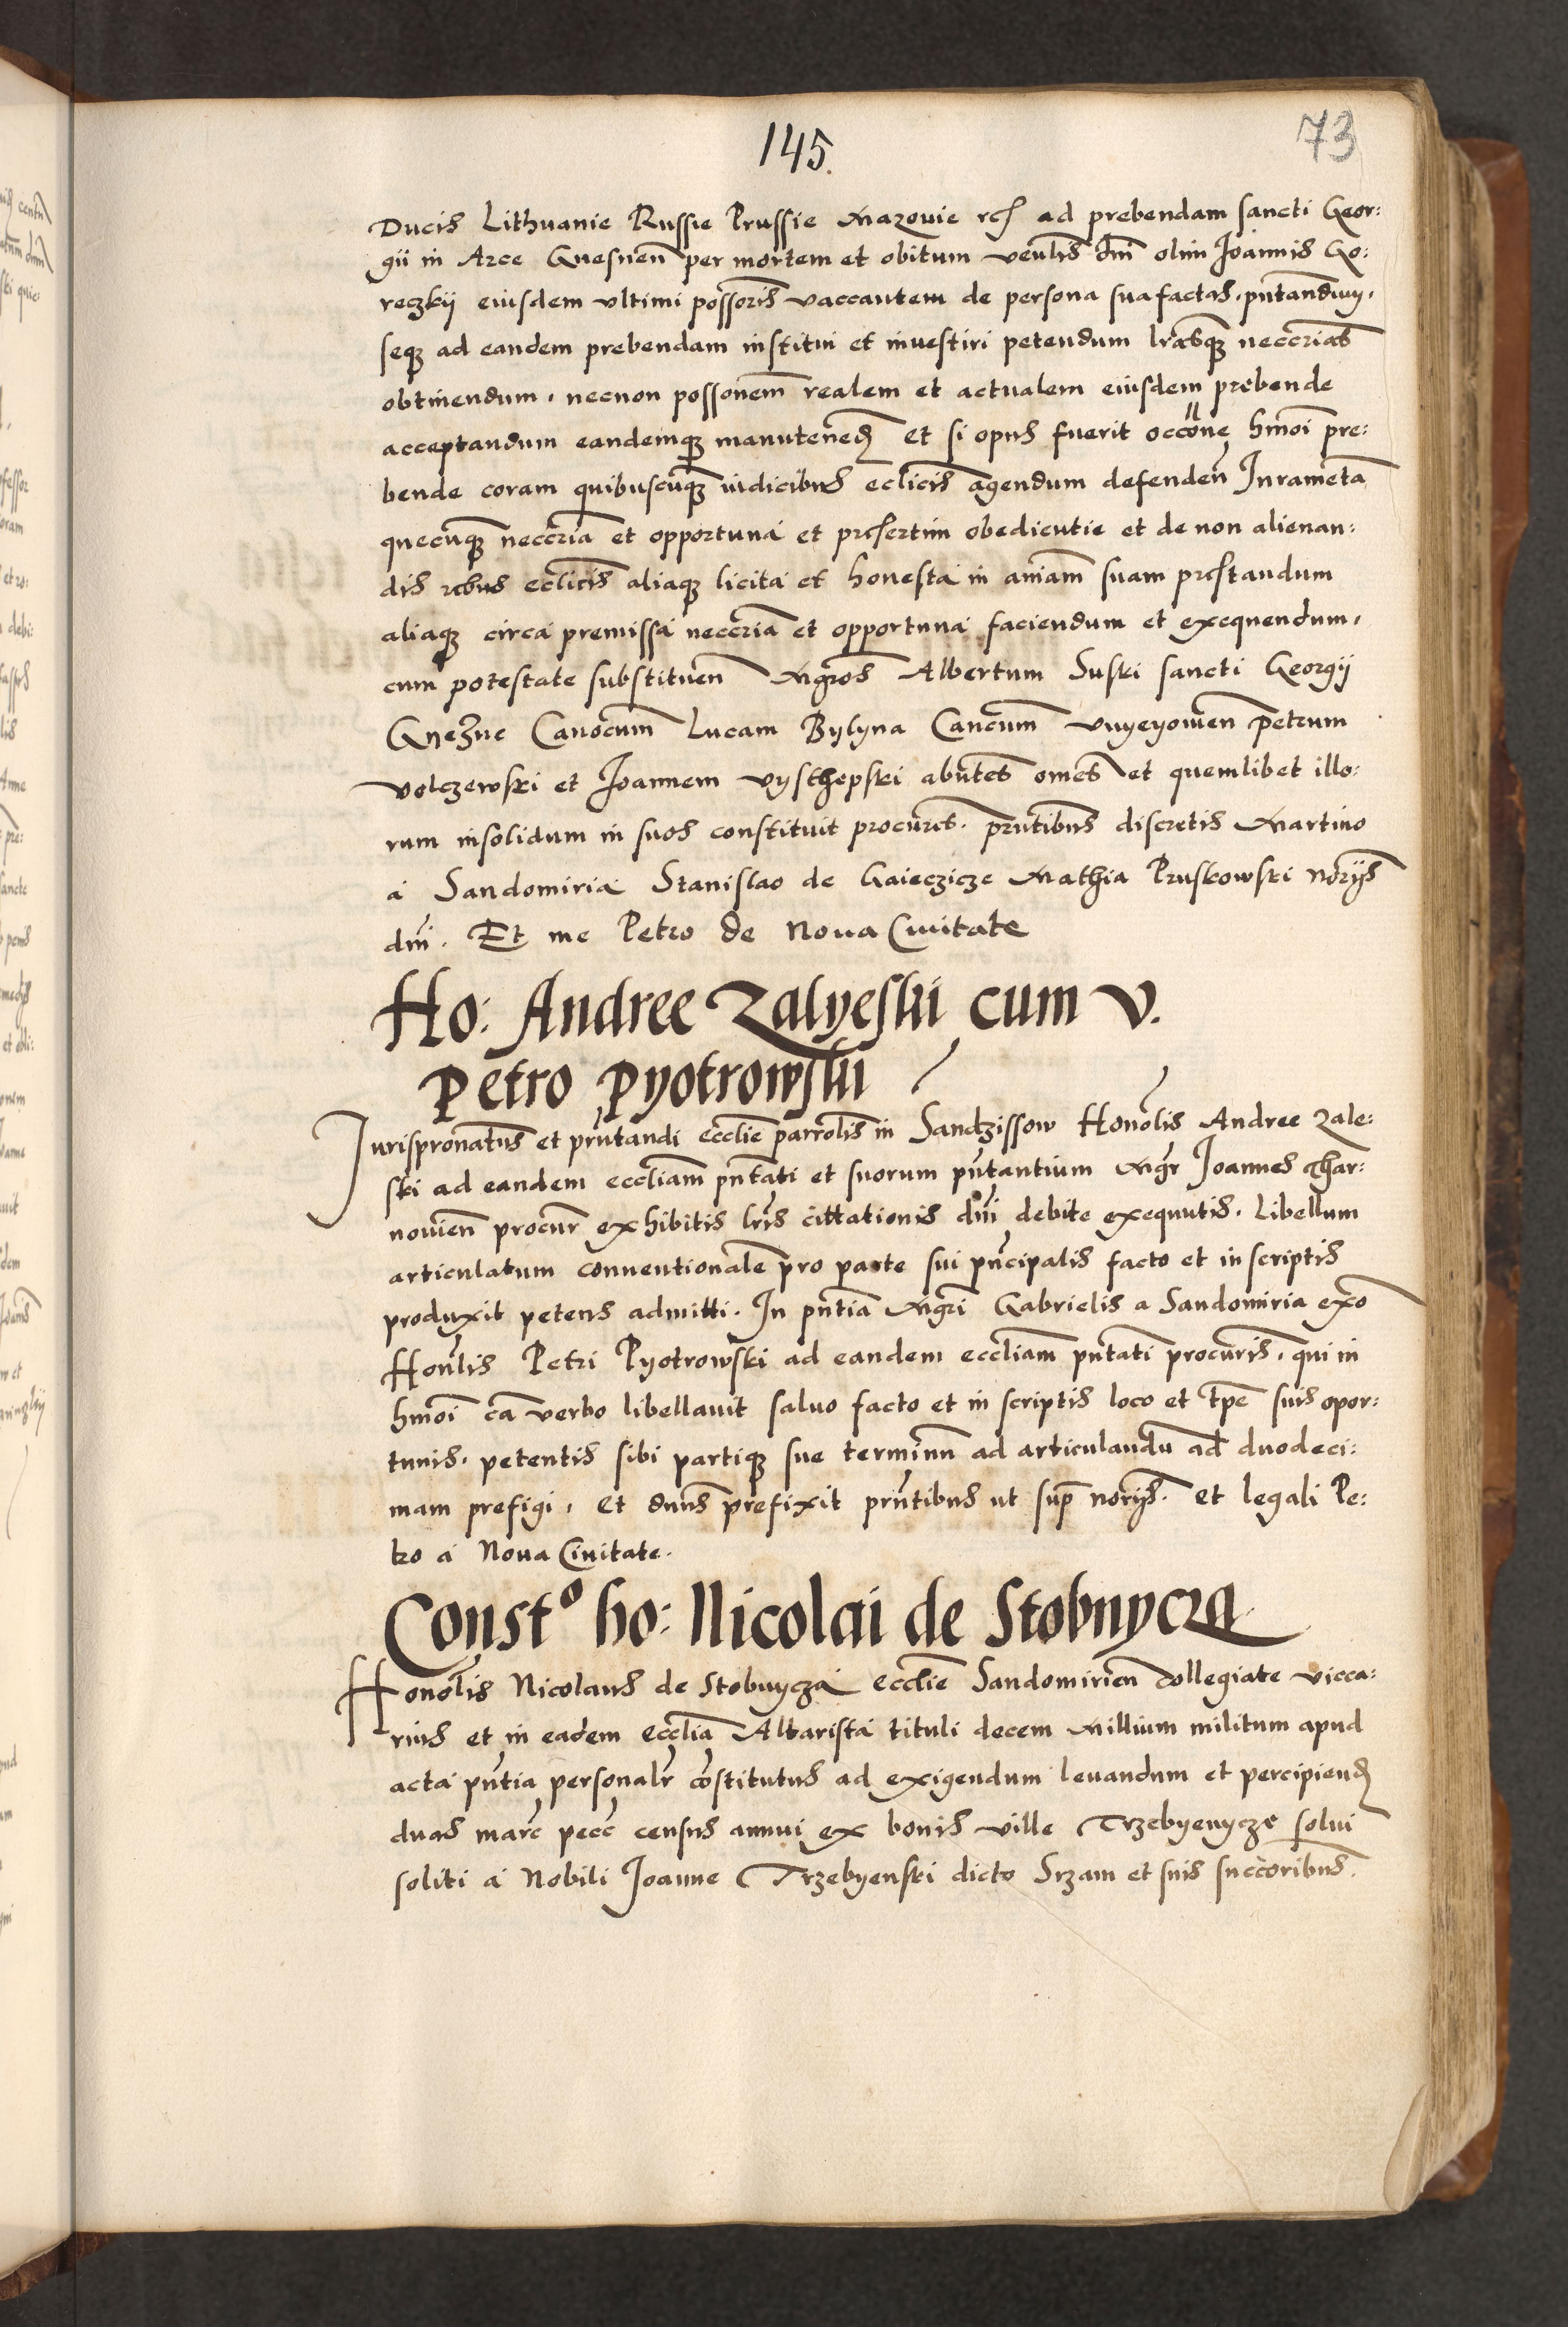 145.
73
Ducis Lithuanie Russie Prussie Mazovie rcȝ ad prebendam sancti Geor:
gii in Arce Gnesnen̄ per mortem et obitum veńlis dn̄i olim Joannis Go:
reczkij eiusdem ultimi posso̅ris vaccantem de persona sua factas. pn̄tandum.
seqȝ ad eandem prebendam institui et investiri petendum lr̄asqȝ necc̄rias
obtinendum. necnon posson̄em realem et actualem eiusdem prebende
acceptandum eandemqȝ manutenen̄d et si opus fuerit occōne hm̄oi pre:
bende coram quibuscūqȝ iudicibus ecl̄icis agendum defenden̄ Juramēta
quecūqȝ necc̄ria et opportuna et presertim obedientie et de non alienan:
dis rebus ecl̄icis aliaqȝ licita et honesta in an̄iam suam prestandum
aliaqȝ circa premissa necc̄ria et opportuna faciendum et exequendum,
cum potestate substituen̄ Mgr̄os Albertum Suski sancti Georgij
Gnezne Canōcum Lucam Bylyna Can̄cum Vnyeyowen̄ Petrum
Volczewski et Joannem Vysthepski abn̄tes om̄es et quemlibet illo:
rum insolidum in suos constituit procur̄es. prn̄tibus discretis Martino
a Sandomiria Stanislao de Gaieczicze Mathia Pruskowski nōrijs
dn̄i. Et me Petro de Nova Civitate
Ho: Andree Zalyeski cum V.
Petro Pyotrowski
Jurispronatus et prn̄tandi eccl̄ie parro̅lis in Sandzissow Honōlis Andree Zale:
ski ad eandem eccl̄iam pn̄tati et suorum pn̄tantium Mgr̄ Joannes Ghar:
novien̄ procur̄ exhibitis lr̄is cittationis dn̄i debite exequutis. Libellum
articulatum conventionalē pro parte sui pn̄cipalis facto et in scriptis
produxit petens admitti. In pn̄tia Mgr̄i Gabrielis a Sandomiria ex̄o
Hon̄lis Petri Pyotrowski ad eandem eccl̄iam pn̄tati procur̄is. qui in
hm̄oi cā verbo libellavit salvo facto et in scriptis loco et tp̄e suis opor:
tunis. petentis sibi partiqȝ sue terminū ad articulandū ad duodeci:
mam prefigi. et dn̄us prefixit prn̄tibus ut sup̄ nōrijs. et legali Pe:
tro a Nova Civitate.
Const° ho: Nicolai de Stobnycza
Honōlis Nicolaus de Stobnycza eccl̄ie Sandomirien̄ Collegiate vicca:
rius et in eadem eccl̄ia Altarista tituli decem Millium militum apud
acta pn̄tia personalr̄ cōstitutus ad exigendum levandum et percipien̄d
duas marc̄ pecc̄ census annui ex bonis ville Trzebyenycze solvi
soliti a Nobili Joanne Trzebyenski dicto Srzam et suis succ̄oribus.